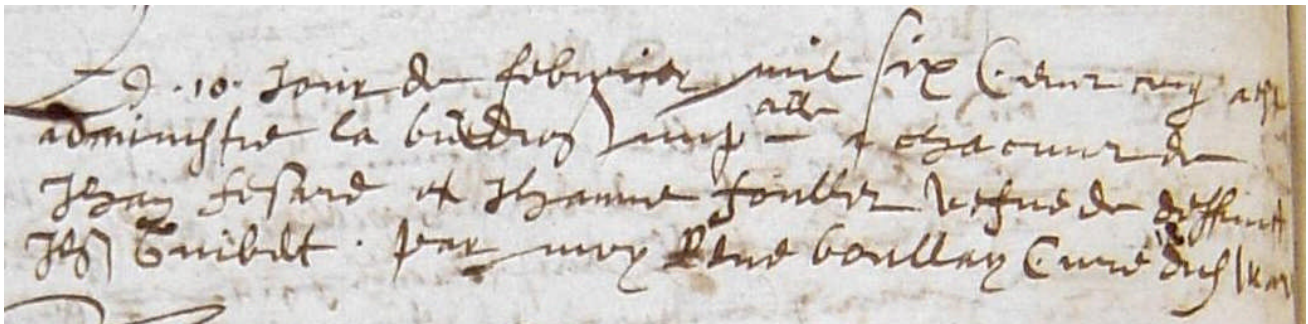 Le .10. Jour de febvrier mil six cent cinq a este
administre la bñdion nupalle a chacun de
Jehan fesard et Jehanne fouller vefve de deffunct
Jeh Guibelt . par moy Rene boullay Curé dud